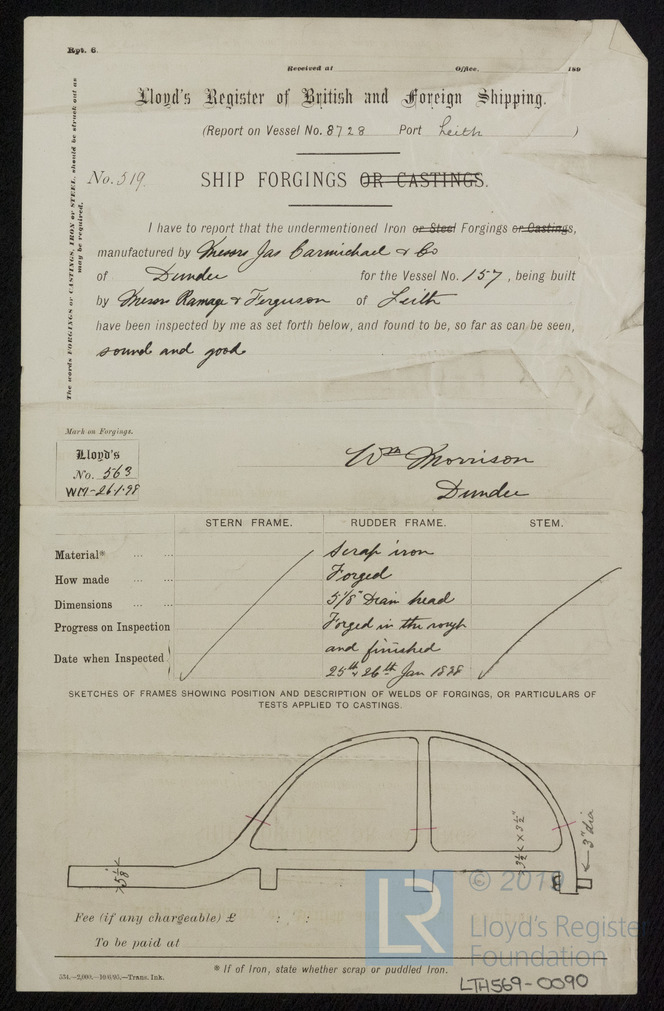 Rpt. 6.
Received at Office. 189
Lloyd's Register of British and Foreign Shipping.
(Report on Vessel No. 8728 Port Leith )
No. 519.
SHIP FORGINGS OR CASTINGS.
The words FORGINGS or CASTINGS, IRON or STEEL, should be struck out as
may be required.
I have to report that the undermentioned Iron or Steel Forgings or Castings,
manufactured by Messrs Jas Carmichael & Co
of Dundee for the Vessel No. 157, being built
by Messrs Ramage & Ferguson of Leith
have been inspected by me as set forth below, and found to be, so far as can be seen,
sound and good
Mark on Forgings.
Lloyd's
No. 563
WM-26.1.98
Wm Morrison
Dundee
STERN FRAME. RUDDER FRAME. STEM.
Material* ... ... Scrap iron
How made ... ... Forged
Dimensions ... ... 5 1/8" Diam head
Progress on Inspection Forged in the rough
and finished
Date when Inspected 25th & 26th Jan 1898
SKETCHES OF FRAMES SHOWING POSITION AND DESCRIPTION OF WELDS OF FORGINGS, OR PARTICULARS OF
TESTS APPLIED TO CASTINGS.
5 1/8"
3 1/2 x 3 1/2"
3" dia
Fee (if any chargeable) £ : :
To be paid at
* If of Iron, state whether scrap or puddled Iron.
LR
© 2019
Lloyd's Register
Foundation
LTH569-0090